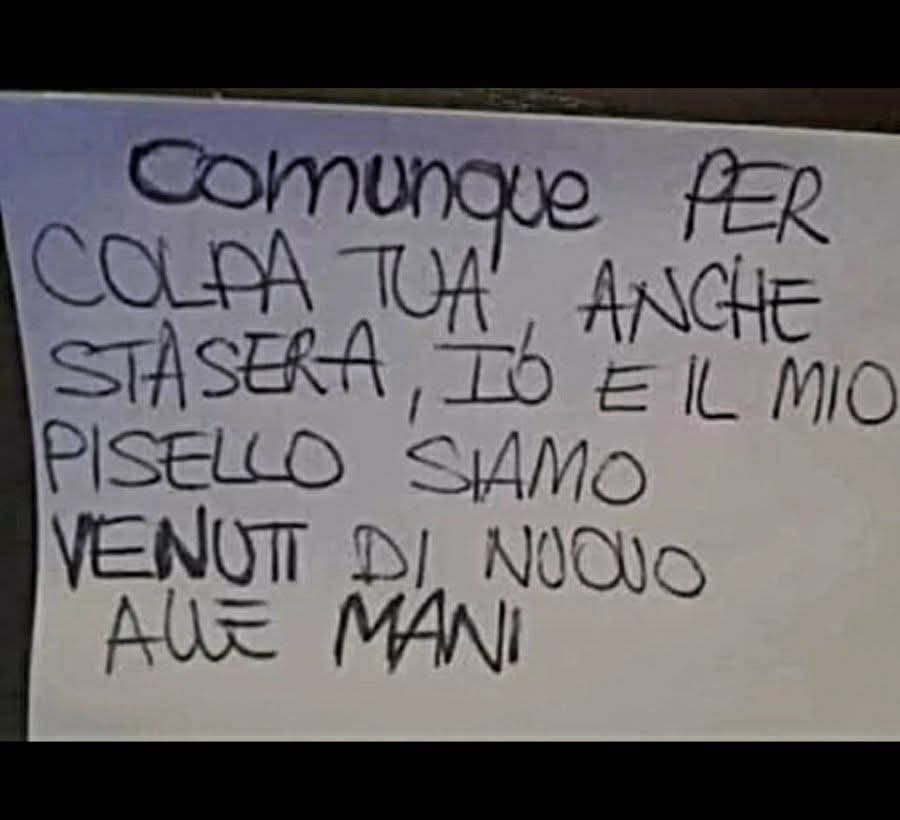 Comunque PER
COLPA TUA, ANCHE
STASERA, IO E IL MIO
PISELLO SIAMO
VENUTI DI NUOVO
ALLE MANI